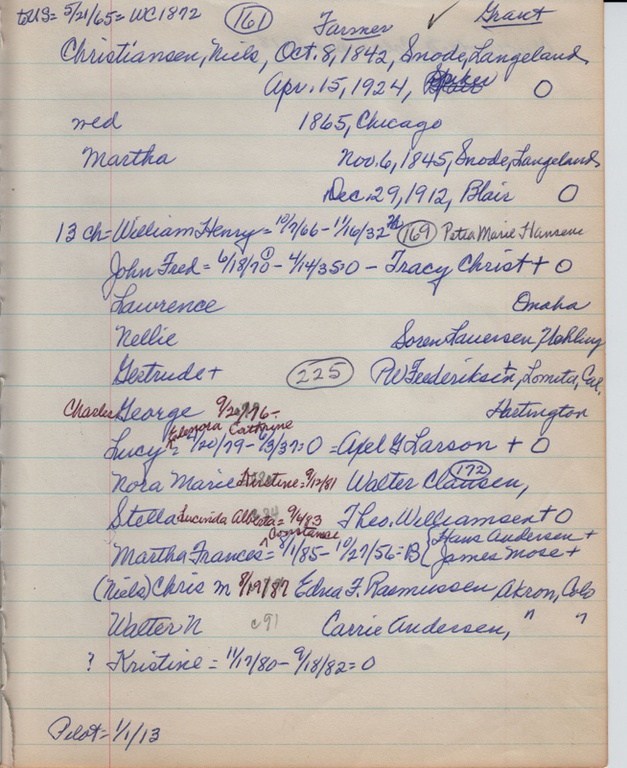 to US = 5/21/65 = WC1872 (161) Farmer ✓ Grant
Christiansen, Niels, Oct. 8, 1842, Snode, Langeland
Apr. 15, 1924, O
wed 1865, Chicago
Martha Nov. 6, 1845, Snode, Langeland
Dec. 29, 1912, Blair O
13 ch = William Henry = 10/7/66 - 11/16/32 (169) Petra Marie Hansen
John Fred = 6/18/70 - 4/14/35=O - Tracy Christ + O
Lawrence Omaha
Nellie Soren Lauersen,
Gertrude + (225) PW Frederiksen +, Lomita, Cal.
Charles George 9/20/76 - Hartington
Elenora Cathryne
Lucy = 4/20/79 - 6/3/37=O = Axel G Larson + O
Nora Marie Kristine = 9/12/81 Walter Clausen, (172)
Stella Lucinda Alberta = 9/4/83 Theo. Williamsen + O
Constance Hans Andersen +
Martha Frances = 8/1/85 - 10/27/56 = B { James Mose +
(Niels) Chris M 8/19/87 Edna F. Rasmussen Akron, Colo
Walter N c91 Carrie Andersen, " "
? Kristine = 11/17/80 - 9/18/82 = O
Pilot = 1/1/13